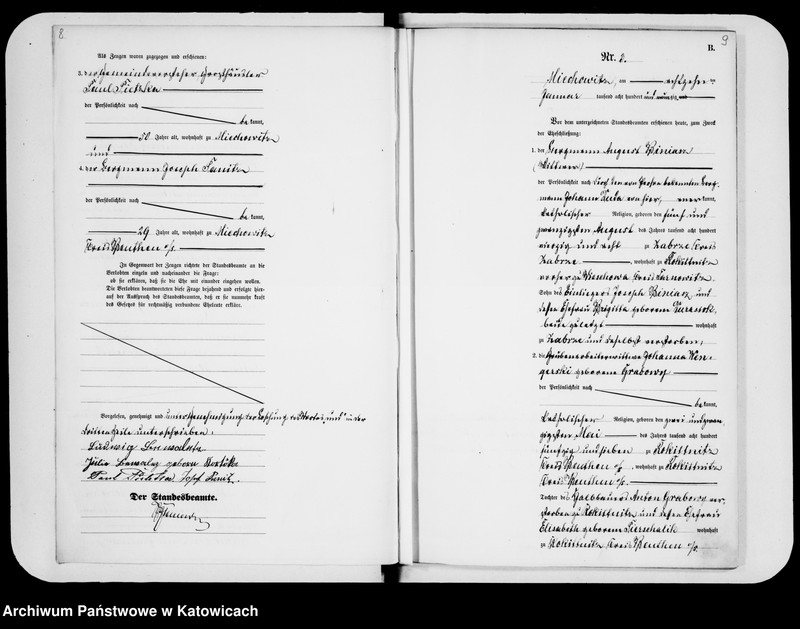 8
Als Zeugen waren zugezogen und erschienen:
3. der Gemeindevorsteher
Paul Pietska
der Persönlichkeit nach
be kannt,
50 Jahre alt, wohnhaft zu Miechowitz
und
4. der Bergmann Joseph
der Persönlichkeit nach
be kannt,
29 Jahre alt, wohnhaft zu Miechowitz
Kreis Beuthen o/s.
In Gegenwart der Zeugen richtete der Standesbeamte an die
Verlobten einzeln und nacheinander die Frage:
ob sie erklären, daß sie die Ehe mit einander eingehen wollen.
Die Verlobten beantworteten diese Frage bejahend und erfolgte hierauf der Ausspruch des Standesbeamten, daß er sie nunmehr kraft
des Gesetzes für rechtmäßig verbundene Eheleute erkläre.
Vorgelesen, genehmigt und unter Genehmigung der Löschung des Wortes „und" in der
dritten Zeile unterschrieben:
Ludwig
Julie geborn
Paul Josef
Der Standesbeamte.
9
B.
Nr. 2.
Miechowitz, am achtzehn ten
Januar tausend acht hundert und neunzig und
Vor dem unterzeichneten Standesbeamten erschienen heute, zum Zweck
der Eheschließung:
1. der Bergmann August Biniasz
(Wittwer)
der Persönlichkeit nach durch den von Person bekannten Berg-
mann Johann von hier, aner kannt,
katholischer Religion, geboren den fünf und
zwanzigsten August des Jahres tausend acht hundert
vierzig und acht zu Zabrze Kreis
Zabrze, wohnhaft zu Rokittnitz
vorher zu Wieschowa Kreis Tarnowitz
Sohn des Einliegers Joseph Biniasz und
dessen Ehefrau Brigitta geborene
beide zuletzt wohnhaft
zu Zabrze und daselbst verstorben;
2. die Grubenarbeiterwittwe Johanna Wen-
gerski geborene Grabowy
der Persönlichkeit nach
be kannt,
katholischer Religion, geboren den zwei und zwan-
zigsten Mai des Jahres tausend acht hundert
fünfzig und sieben zu Rokittnitz
Kreis Beuthen o/s, wohnhaft zu Rokittnitz
Kreis Beuthen o/s.
Tochter des Halbbauers Anton Grabowy ver-
storben zu Rokittnitz und dessen Ehefrau
Elisabeth geborene Pierschalik wohnhaft
zu Rokittnitz Kreis Beuthen o/s.
Archiwum Państwowe w Katowicach